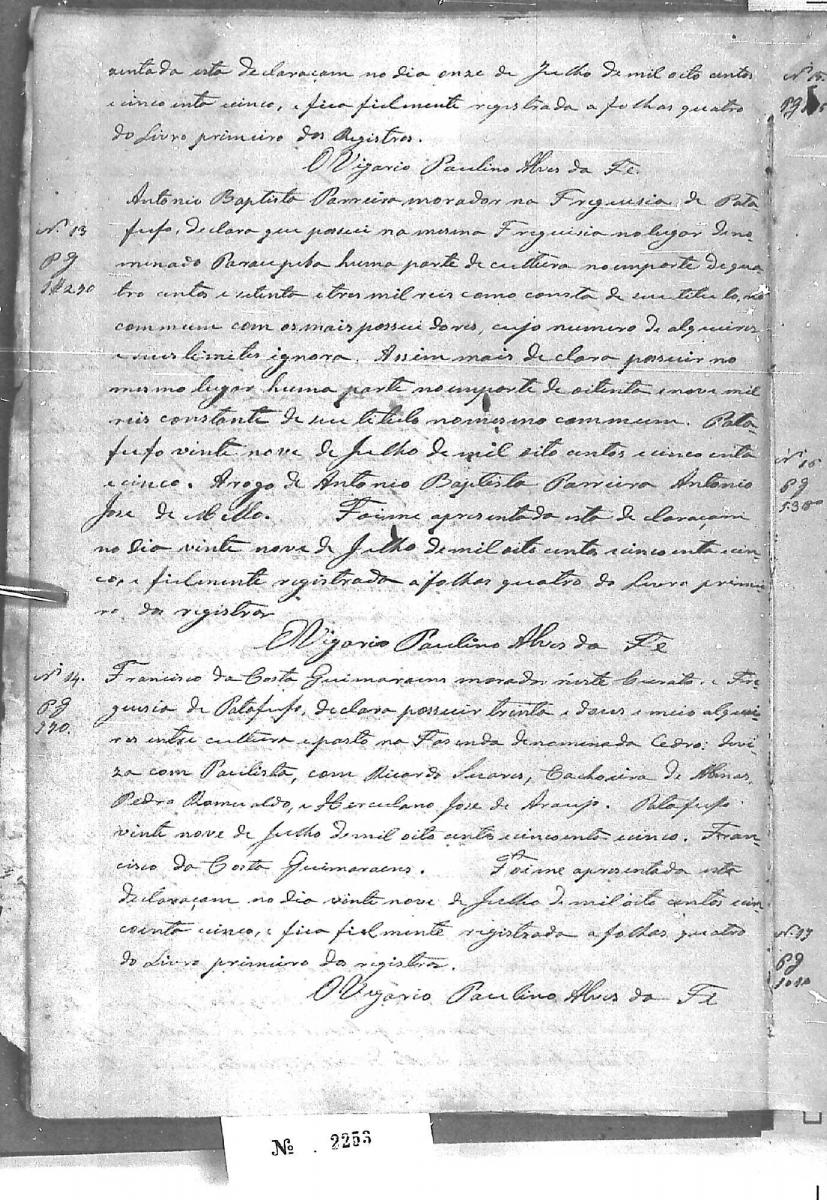 zentada esta declaraçam no dia onze de Julho de mil oito centos
e cinco enta e cinco, e fica fielmente registrada a folhas quatro
do Livro primeiro dos Registros.
O Vigario Paulino Alves da Fe.
Antonio Baptista Parreira, morador na Freguesia de Pata-
fufo, declara que possui na mesma Freguisia no lugar deno-
minado Paraupeba huma parte de cultura no importe de qua
tro centos e setenta e tres mil reis como consta de seu titulo, no
commum com os mais possuidores, cujo numero de alqueires
e seus limites ignora. Assim mais declara possuir no
mesmo lugar huma parte no importe de oitenta e nove mil
reis constante de seu titulo no mesmo commum. Pata-
fufo vinte nove de Julho de mil oito centos e cinco enta
e cinco. Arogo de Antonio Baptista Parreira Antonio
Jose de Mello. Foi me apresentada esta declaraçam
no dia vinte nove de Julho de mil oito centos e cinco enta e cin-
co, e fielmente registrada a folhas quatro do Livro primei
ro dos registros
O Vigario Paulino Alves da Fe
Francisco da Costa Guimaraens morador neste Curato, e Fre
guesia de Patafufo, declara possuir trinta e doues e meio alquei-
res entre cultura e pasto na Fasenda denominada Cedro: devi-
za com Paulista, com Ricardo Soares, Cachoeira de Minas,
Pedro Romualdo, e Herculano Jose de Araujo. Patafufo
vinte nove de Julho de mil oito centos e cinco enta e cinco. Fran-
cisco da Costa Guimaraens. Foi me apresentada esta
declaraçam no dia vinte nove de Julho de mil oito centos e cin-
coenta e cinco, e fica fielmente registrada a folhas quatro
do Livro primeiro dos registros.
O Vigario Paulino Alves da Fe
Nº 13
Pg
1#290
Nº 14.
Pg
990.
Nº 15.
Pg
Nº 16
Pg
1380
Nº 17
Pg
1010
Nº 2253